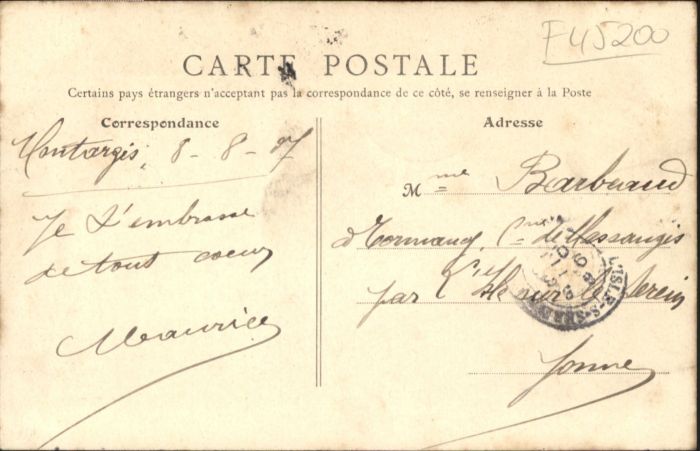 F45200
CARTE POSTALE
Certains pays étrangers n'acceptent pas la correspondance de ce côté, se renseigner à la Poste
Correspondance
Adresse
Montargis, 8-8-07
Je t'embrasse
de tout coeur
Maurice
Mme Barbuaud
d'Tormancy, Cne de Massangis
par L'Isle sur le Serein
Yonne
L'ISLE-S-SEREIN